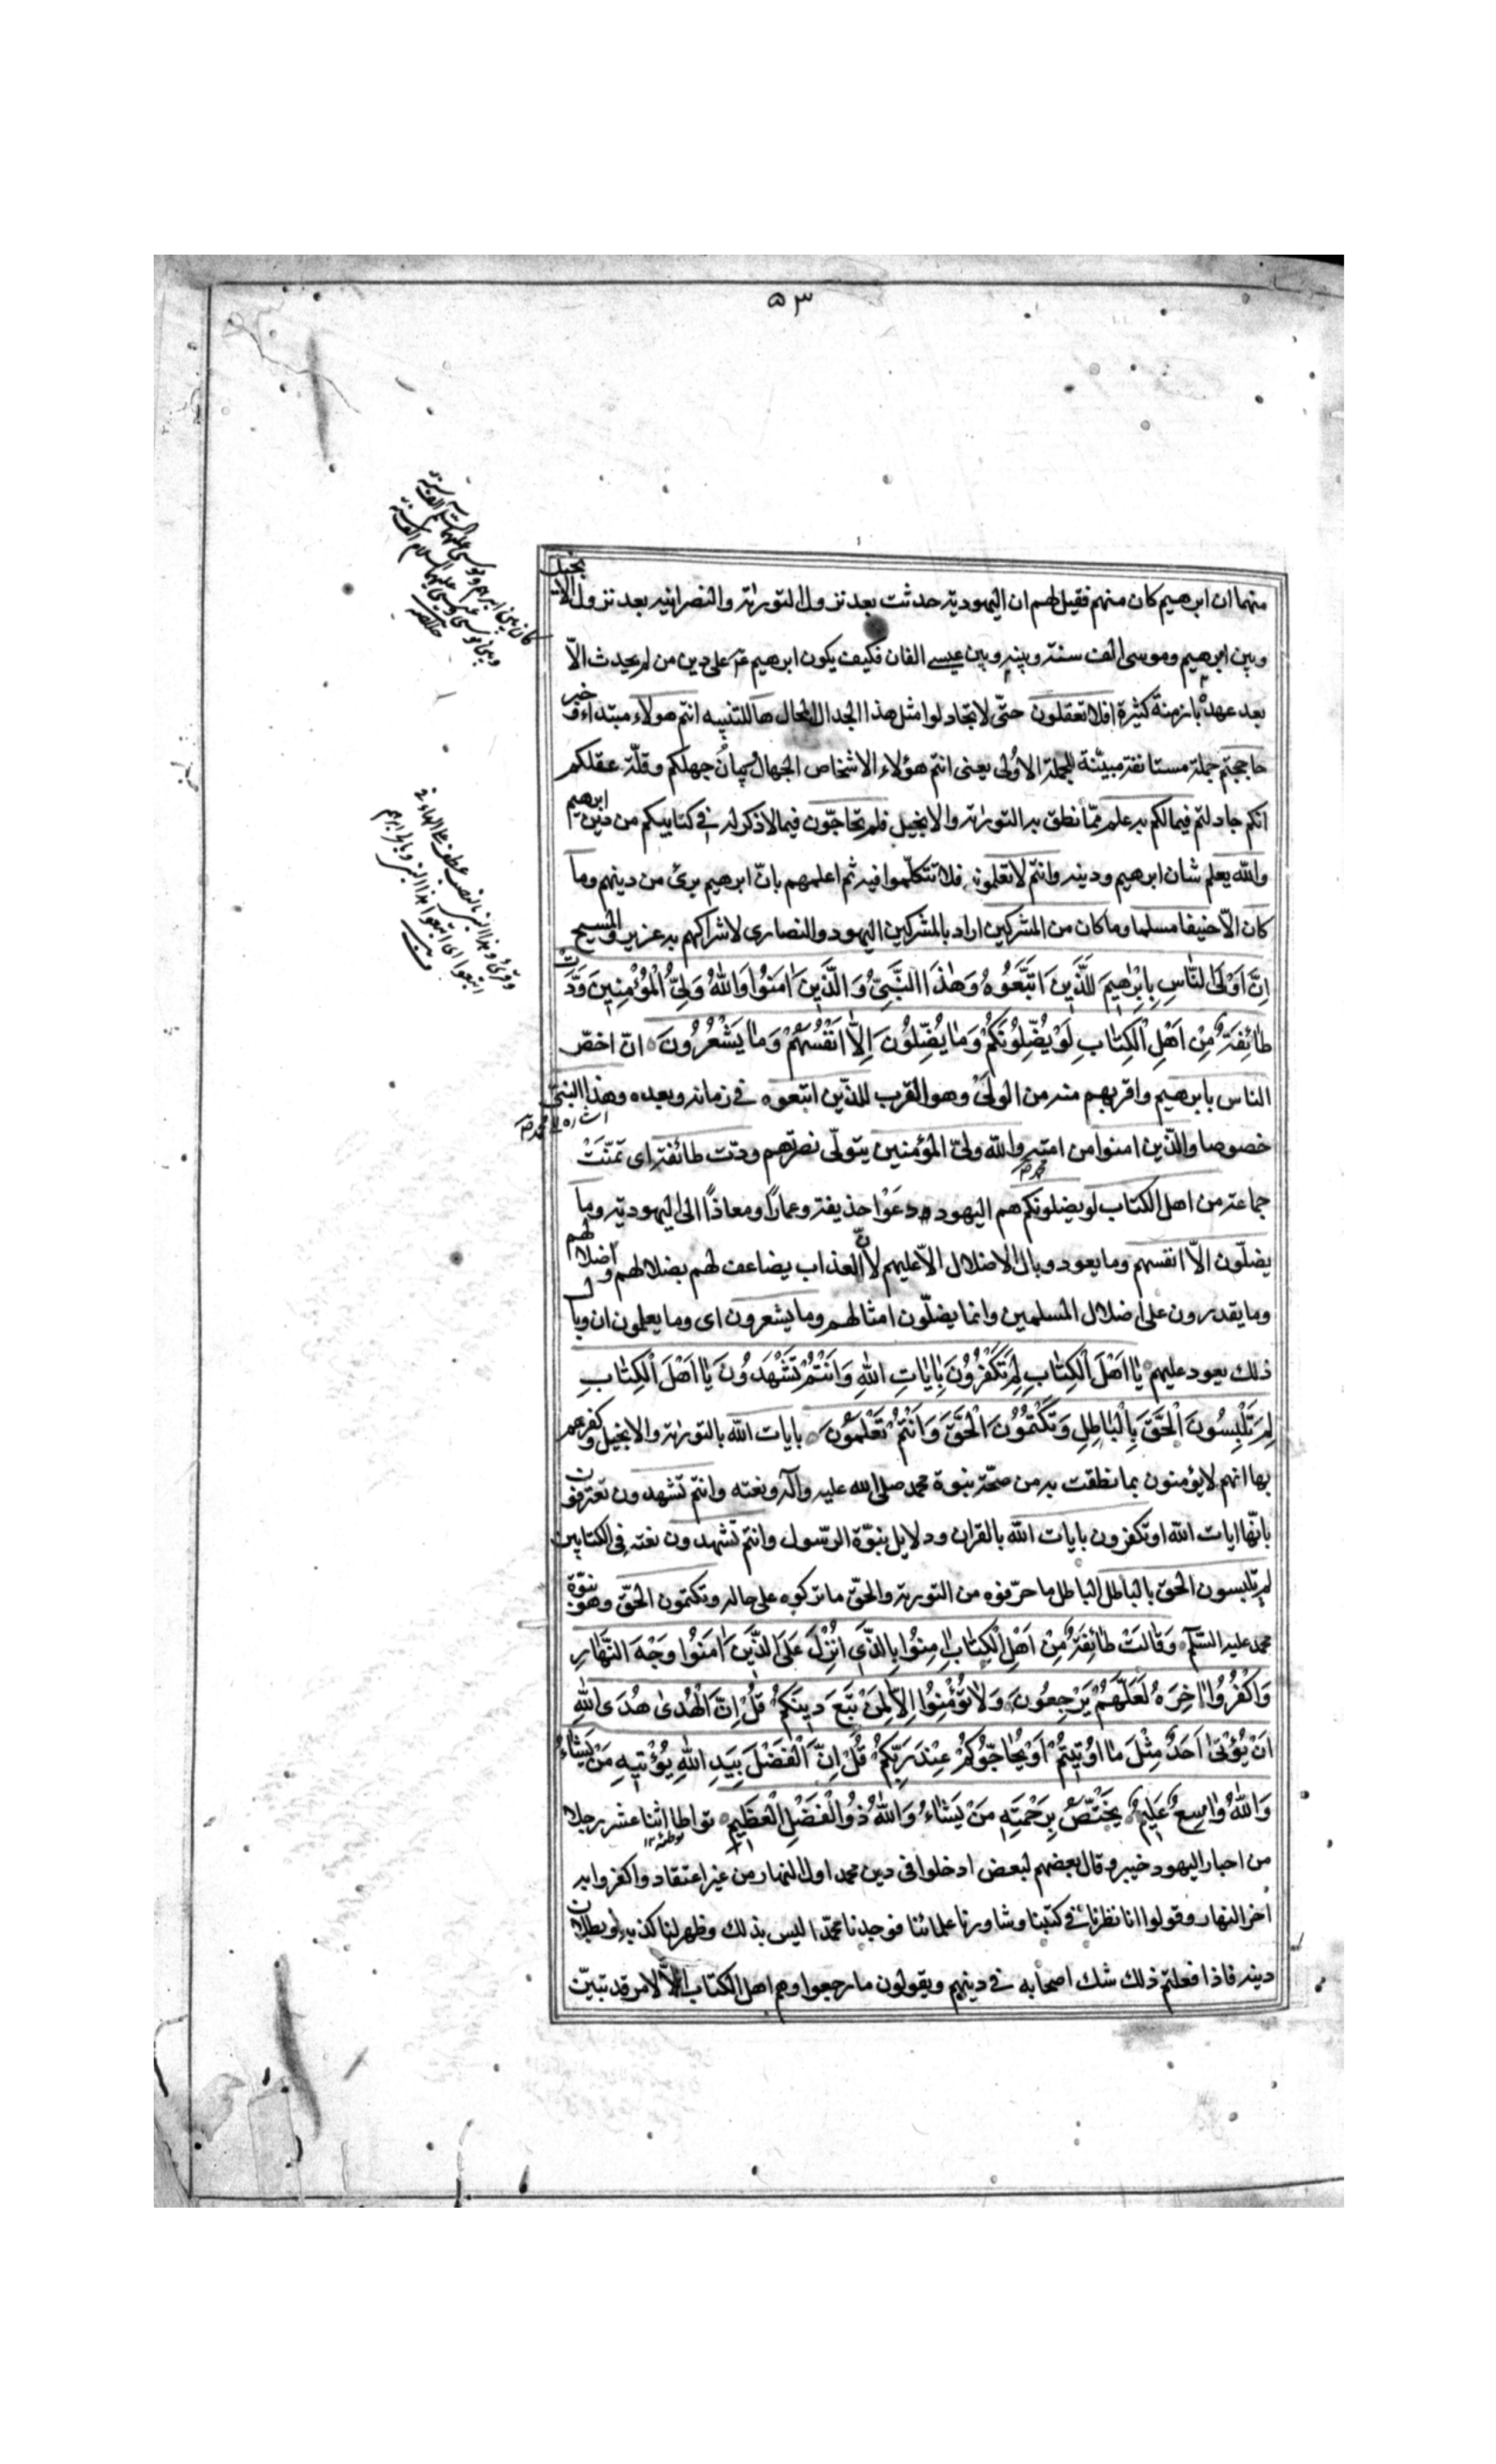 ٥٣
منهما ان ابرهيم كان منهم فقيل لهم ان اليهودية حدثت بعد نزول التورٰىة والنصرانية بعد نزول الانجيل
وبين ابرهيم وموسى الف سنة وبينه وبين عيسى الفان فكيف يكون ابرهيم ع على دين من لم يحدث الّا
بعد عهده بازمنة كثيرة افلا تعقلون حتّى لا تجادلوا مثل هذا الجدال المحال ها للتنبيه انتم هولاء مبتداء وخبر
حاججتم جملة مستانفة مبيّنة للجملة الاولى يعنى انتم هؤلاء الاشخاص الجهال وبيان جهلكم وقلّة عقلكم
انكم جادلتم فيما لكم به علم ممّا نطق به التورٰىة والانجيل فلم تحاجّون فيما لا ذكر له في كتابيكم من دين ابرهيم
والله يعلم شان ابرهيم ودينه وانتم لا تعلمونه فلا تتكلّموا فيه ثم اعلمهم بانّ ابرهيم برئ من دينهم وما
كان الّا حنيفا مسلما وما كان من المشركين اراد بالمشركين اليهود والنصارى لاشراكهم به عزير والمسيح
اِنَّ اَوْلَى النّٰاسِ بِاِبْرٰهِيمَ لَلَّذِينَ اتَّبَعُوهُ وَهٰذَا النَّبِيُّ وَالَّذِينَ اٰمَنُوا وَاللهُ وَلِيُّ الْمُؤْمِنِينَ وَدَّتْ
طٰائِفَةٌ مِنْ اَهْلِ الْكِتٰابِ لَوْ يُضِلُّونَكُمْ وَمٰا يُضِلُّونَ اِلّٰا اَنْفُسَهُمْ وَمٰا يَشْعُرُونَ انّ اخصّ
الناس بابرهيم واقربهم منه من الولي وهو القرب للذّين اتبعوه في زمانه وبعده وهذا النبيّ
اشاره الى محمد ص
خصوصا والذّين امنوا من امته والله وليّ المؤمنين يتولّى نصرتهم ودّت طائفة اى تمنّت
جماعة من اهل الكتاب لو يضلونكم هم اليهود دعَوْا حذيفة وعمارًا ومعاذًا الى اليهودية وما
يضلّون الّا انفسهم وما يعود وبال الاضلال الّا عليهم لانّ العذاب يضاعف لهم بضلالهم واضلالهم
وما يقدرون على اضلال المسلمين وانما يضلّون امثالهم وما يشعرون اى وما يعلمون ان وبال
ذلك يعود عليهم يٰا اَهْلَ الْكِتٰابِ لِمَ تَكْفُرُونَ بِاٰيٰاتِ اللهِ وَاَنْتُمْ تَشْهَدُونَ يٰا اَهْلَ الْكِتٰابِ
لِمَ تَلْبِسُونَ الْحَقَّ بِالْبٰاطِلِ وَتَكْتُمُونَ الْحَقَّ وَاَنْتُمْ تَعْلَمُونَ بايات الله بالتورٰىة والانجيل وكفرهم
بها انهم لا يؤمنون بما نطقت به من صحّة نبوة محمد صلى الله عليه وآله ونعته وانتم تشهدون تعترفون
بانّها ايات الله او تكفرون بايات الله بالقران ودلايل نبوّة الرّسول وانتم تشهدون نعته في الكتابين
لم تلبسون الحق بالباطل الباطل ما حرّفوه من التورية والحقّ ما تركوه على حاله وتكتمون الحقّ وهو نبوّة
محمد عليه السّلم وَقٰالَتْ طٰائِفَةٌ مِنْ اَهْلِ الْكِتٰابِ اٰمِنُوا بِالَّذِي اُنْزِلَ عَلَى الَّذِينَ اٰمَنُوا وَجْهَ النَّهٰارِ
وَاكْفُرُوا اٰخِرَهُ لَعَلَّهُمْ يَرْجِعُونَ وَلٰا تُؤْمِنُوا اِلّٰا لِمَنْ تَبِعَ دِينَكُمْ قُلْ اِنَّ الْهُدىٰ هُدَى اللهِ
اَنْ يُؤْتىٰ اَحَدٌ مِثْلَ مٰا اُوتِيتُمْ اَوْ يُحٰاجُّوكُمْ عِنْدَ رَبِّكُمْ قُلْ اِنَّ الْفَضْلَ بِيَدِ اللهِ يُؤْتِيهِ مَنْ يَشٰاءُ
وَاللهُ وٰاسِعٌ عَلِيمٌ يَخْتَصُّ بِرَحْمَتِهِ مَنْ يَشٰاءُ وَاللهُ ذُو الْفَضْلِ الْعَظِيمِ تواطا اثنا عشر رجلا
من احبار اليهود خيبر وقال بعضهم لبعض ادخلوا في دين محمد اول النهار من غير اعتقاد واكفروا به
اخر النهار وقولوا انا نظرنا في كتبنا وشاورنا علمائنا فوجدنا محمّدا ليس بذلك وظهر لنا كذبه وبطلان
دينه فاذا فعلتم ذلك شك اصحابه في دينهم ويقولون ما رجعوا وهم اهل الكتاب الّا لامر قد تبيّن
كان بين ابراهيم وموسى عليهما السلم الف سنة
وبين موسى وعيسى عليهما السلام الف سنة